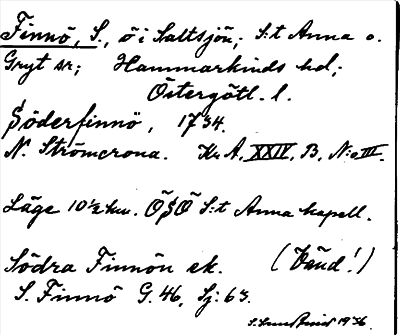 Finnö, S., ö i Saltsjön; S:t Anna o.
Gryt sr; Hammarkinds hd;
Östergötl. l.
Söderfinnö, 1734.
N. Strömcrona. Kr. A, XXIV, B, N:o III.
Läge 10½ km. ÖSÖ S:t Anna kapell.
Södra Finnön ek. (Vänd!)
S. Finnö G. 46, Sj: 63.
1936.